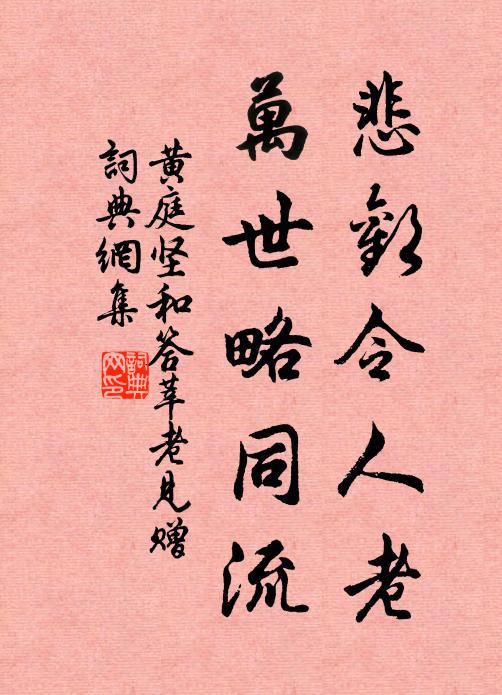 悲歡令人老
萬世略同流
黃庭坚和答莘老見赠
詞典網集
詞典
网印